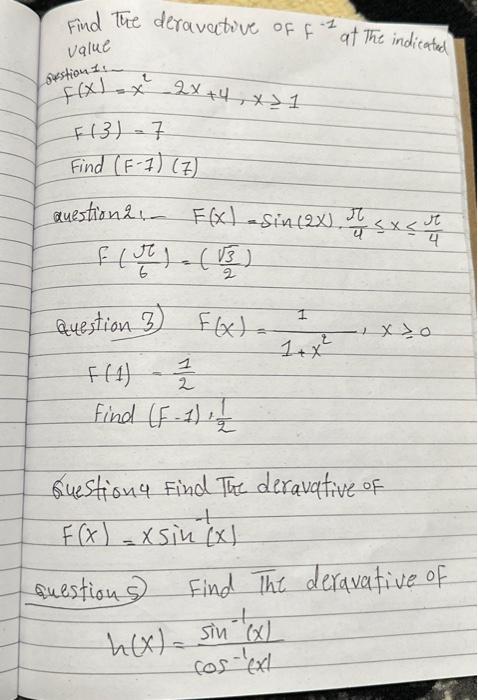 Find The deravective of F⁻¹ at The indicated
value
Question 1:-
F(x) = x² - 2x + 4, x ≥ 1
F(3) - 7
Find (F-1) (7)
question 2:- F(x) = sin(2x). π/4 ≤ x ≤ π/4
F(π/6) = (√3/2)
Question 3) F(x) = 1/(1+x²), x ≥ 0
F(1) - 1/2
Find (F-1), 1/2
Question 4 Find The deravative of
F(x) = x sin⁻¹(x)
question 5) Find The deravative of
h(x) = sin⁻¹(x)/cos⁻¹(x)